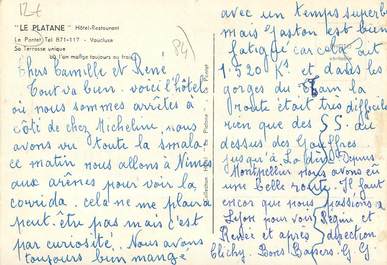 12€
"LE PLATANE" Hôtel-Restaurant
Le Pontet Tél 871-117 - Vaucluse
Sa Terrasse unique
où l'on mange toujours au frais
84)
Chers Camille et René
Tout va bien. voici l'hôtel
où nous sommes arrêtés à
côté de chez Micheline, nous
avons vu toute la smala.
ce matin nous allons à Nimes
aux arènes pour voir la
corrida. cela ne me plaira
peut-être pas mais c'est
par curiosité. Nous avons
toujours bien mangé
avec un temps superbe
mais Gaston est bien
fatigué car cela fait
1.520 Ks. et dans les
gorges du Tarn la
route était très difficile
rien que des SS. du
dessus des Gouffres
jusqu'à Lodève. Depuis
Montpellier nous avons eu
une belle route. Il faut
encor que nous passions à
Lyon pour voir Régine et
Renée et après direction
Clichy. Bons Baisers. G. G.